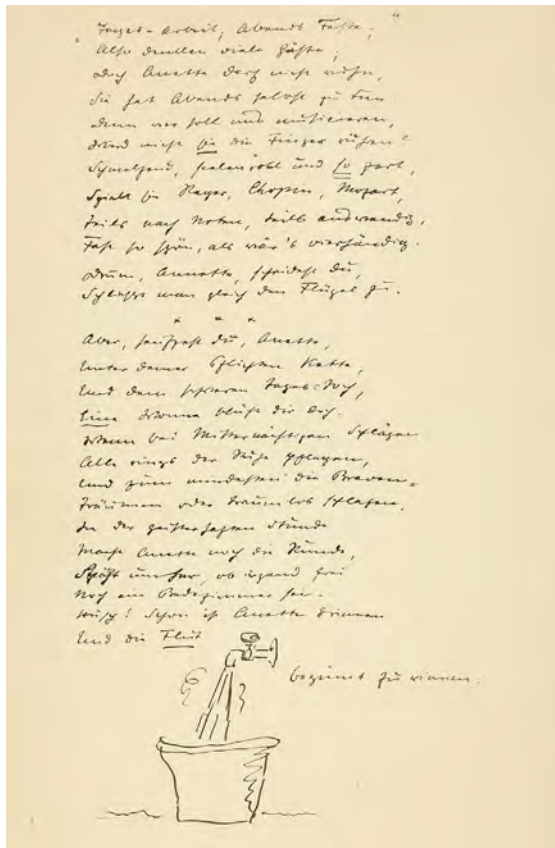 „Tages-Arbeit, Abends Feste,“
Also denken viele Gäste;
Doch Anette darf nicht ruhn,
Sie hat Abends selbst zu tun.
Denn wer soll uns musicieren,
Wird nicht sie die Finger rühren?
Schmelzend, seelenvoll und so zart,
Spielt sie Reger, Chopin, Mozart,
Teils nach Noten, teils auswendig,
Fast so schön, als wär's vierhändig.
Drum, Annette, scheidest du,
Schlägt man gleich den Flügel zu.
* * *
Aber, seufzest du, Anette,
Unter deiner Pflichten Kette,
Und dem schweren Tages-Joch,
Eine Wonne blüht dir doch.
Wenn bei mitternächtigen Schlägen
Alle rings der Ruhe pflegen,
Und zum mindesten die Braven
Träumen oder traumlos schlafen,
In der geisterhaften Stunde
Macht Anette noch die Runde,
Späht umher, ob irgend frei
Noch ein Badezimmer sei.
Husch! Schon ist Anette drinnen
Und die Flut
beginnt zu rinnen.